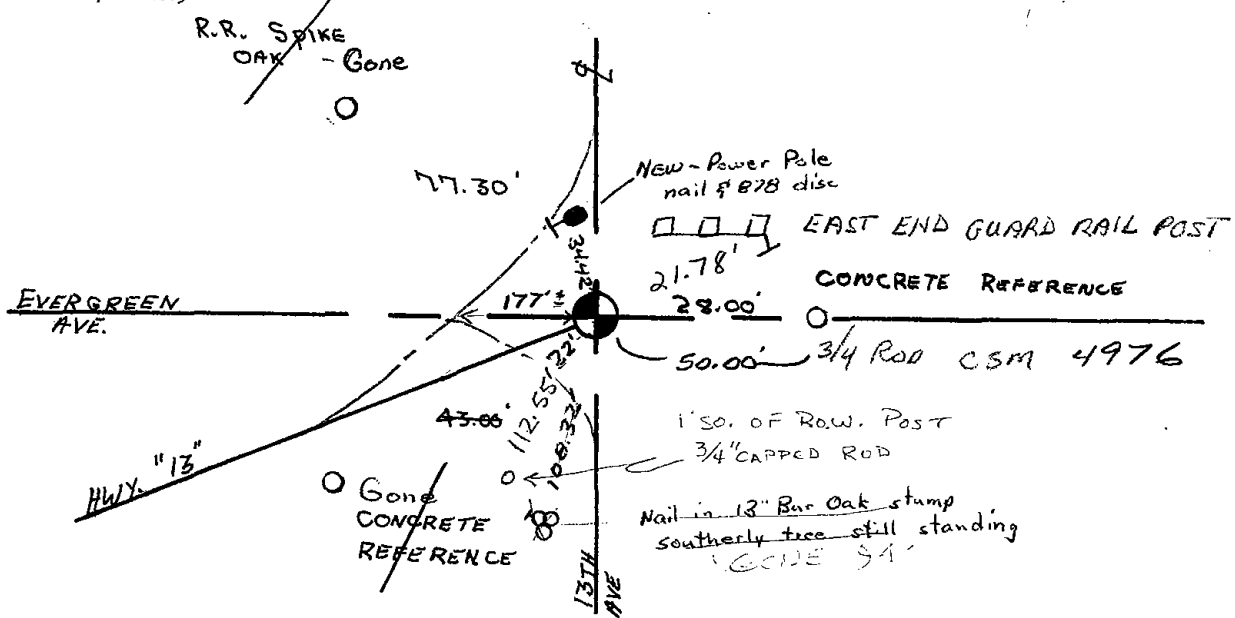 R.R. SPIKE
OAK - Gone
77.30'
NEW - Power Pole
nail & 878 disc
EAST END GUARD RAIL POST
34.42
21.78'
CONCRETE REFERENCE
EVERGREEN
AVE.
177'±
28.00'
50.00'
3/4 ROD CSM 4976
22'
43.00'
112.55'
108.32'
1' SO. OF R.O.W. POST
3/4" CAPPED ROD
HWY. "13"
Gone
CONCRETE
REFERENCE
Nail in 13" Bur Oak stump
southerly tree still standing
13TH
AVE